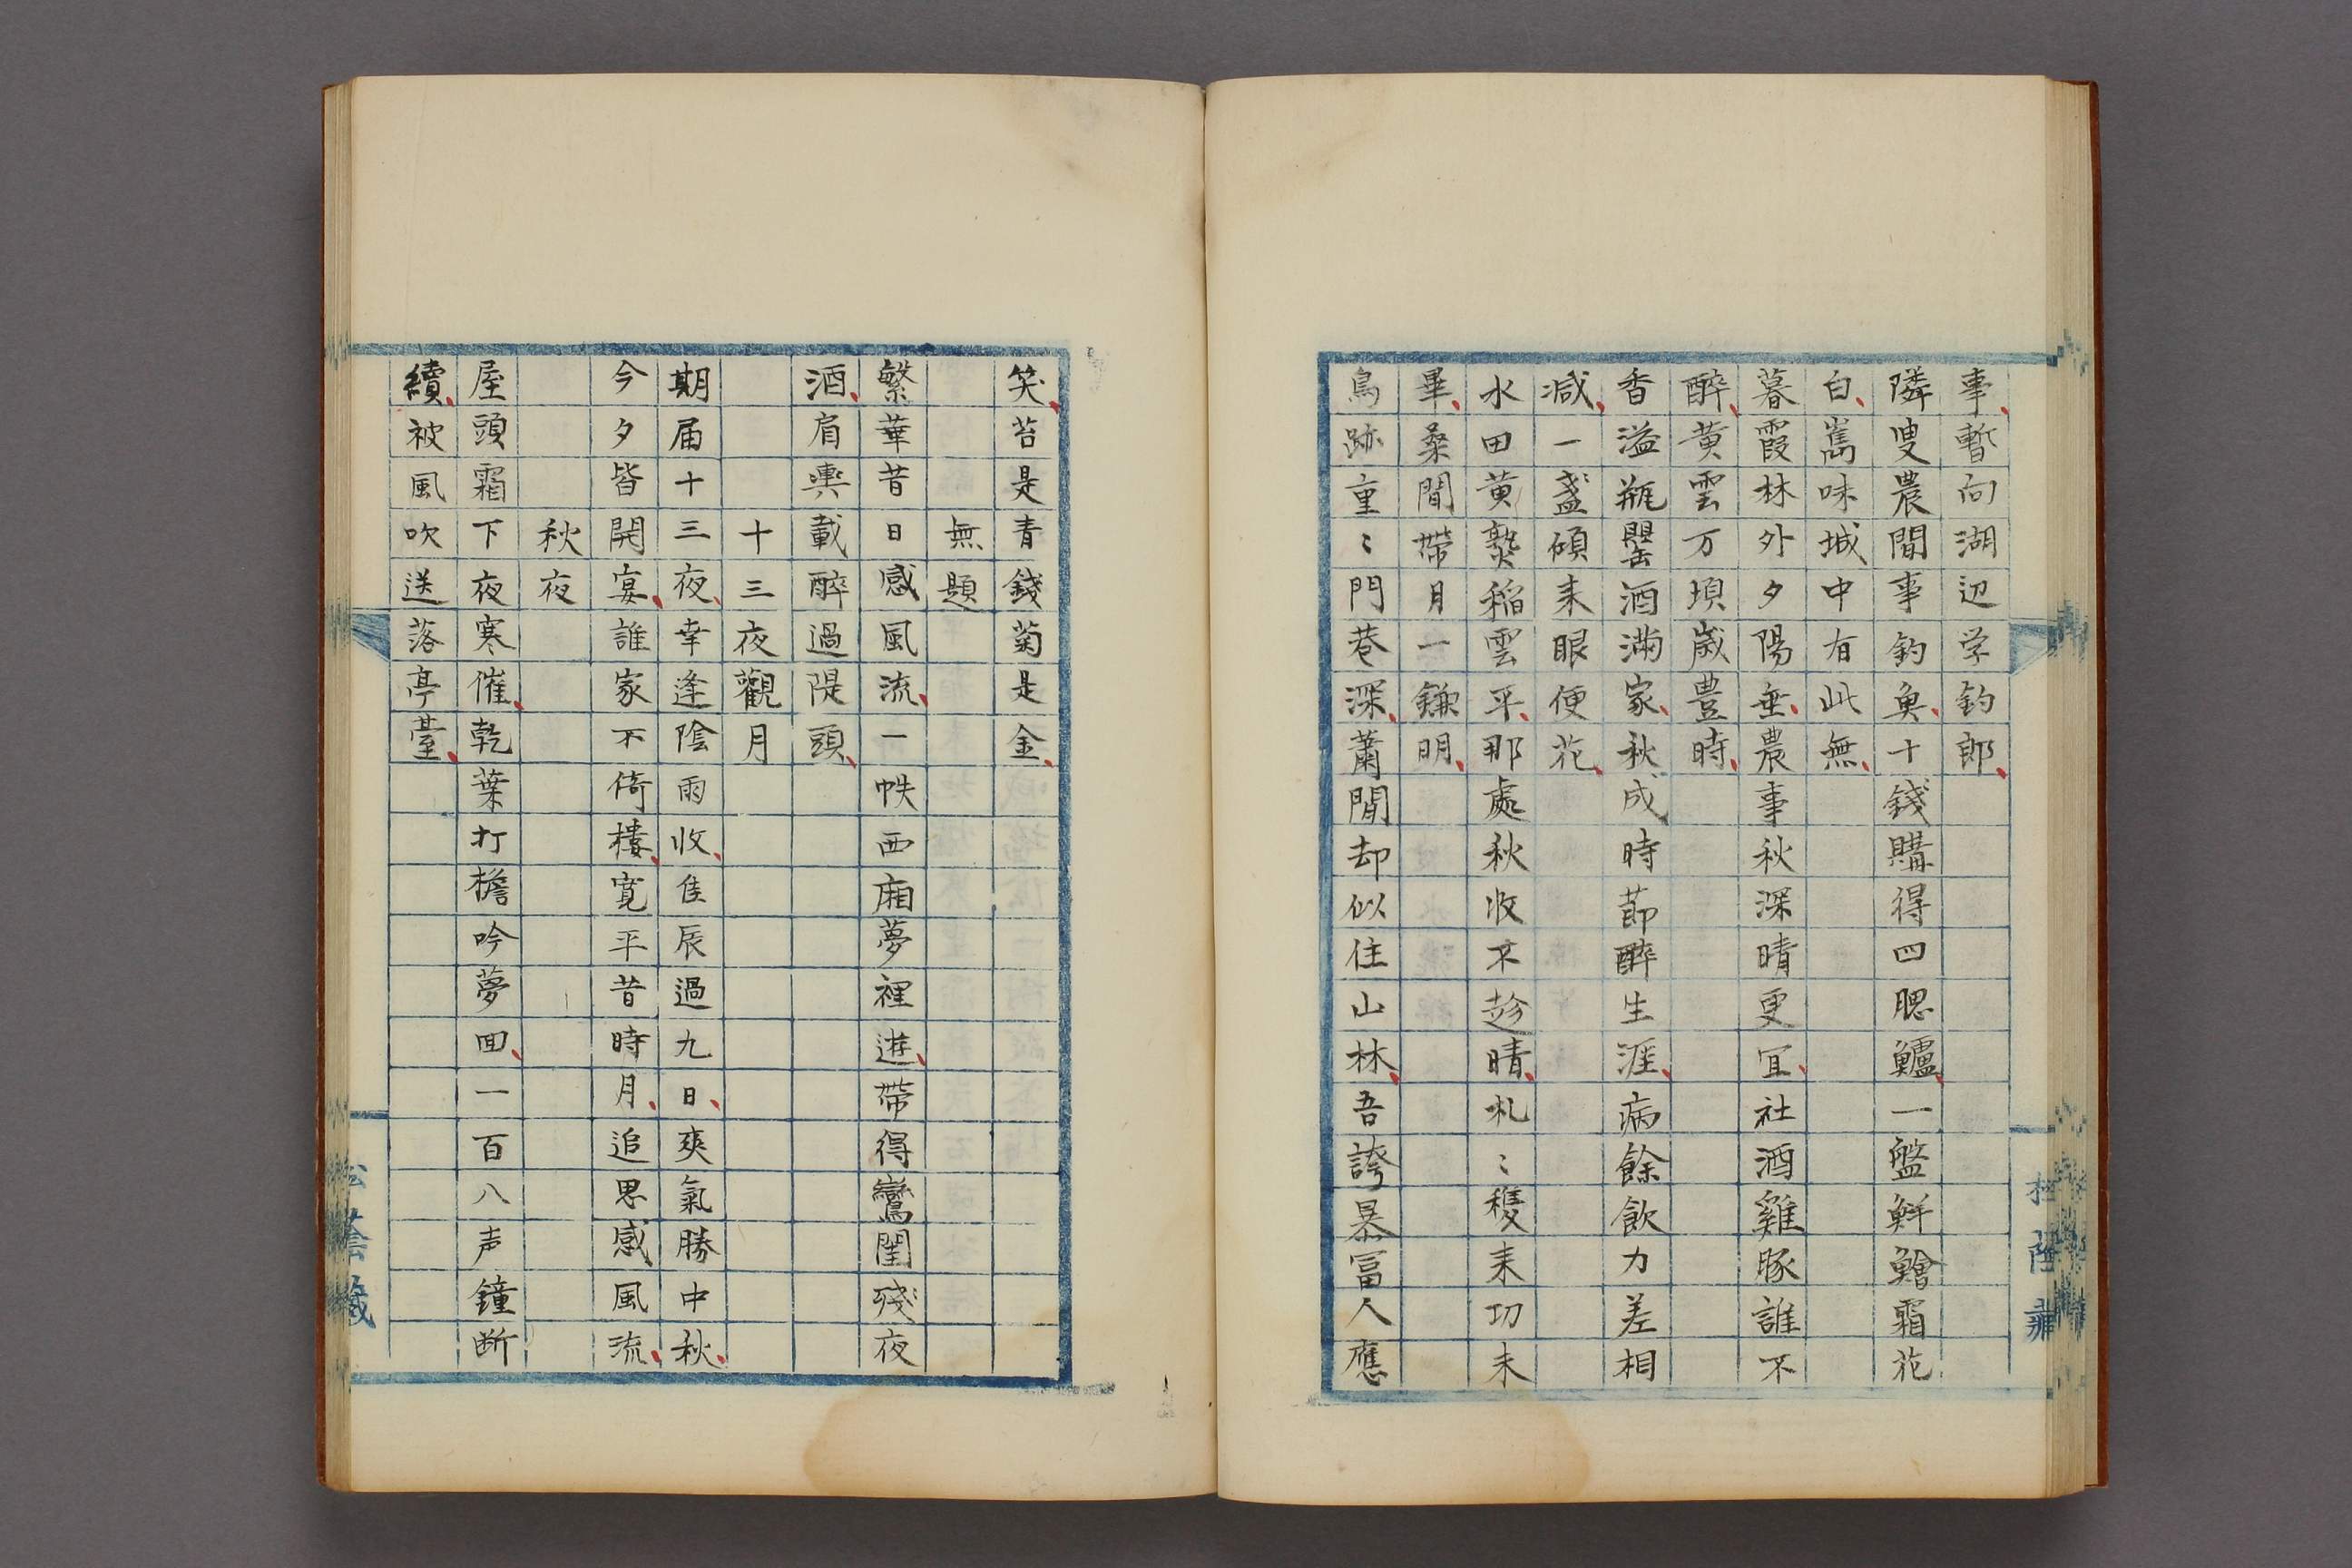 事暫向湖辺学釣郎
隣叟農間事釣魚十錢購得四腮鱸一盤鮮鱠霜花
白嶌味城中有此無
暮霞林外夕陽垂農事秋深晴更宜社酒雞豚誰不
醉黄雲万頃歳豊時
香溢瓶罌酒滿家秋成時節醉生涯病餘飲力差相
减一盞傾来眼便花
水田黄熟稲雲平那處秋收不趁晴札〻穫来功未
畢桑間帶月一鎌明
鳥跡重〻門巷深蕭閒却似住山林吾誇暴冨人應
笑苔是青錢菊是金
無題
繁華昔日感風流一帙西廂夢裡遊帶得鸞閨殘夜
酒肩輿載醉過隄頭
十三夜觀月
期届十三夜幸逢陰雨收佳辰過九日爽氣勝中秋
今夕皆開宴誰家不倚樓寛平昔時月追思感風流
秋夜
屋頭霜下夜寒催乾葉打檐吟夢回一百八声鐘断
續被風吹送落亭臺